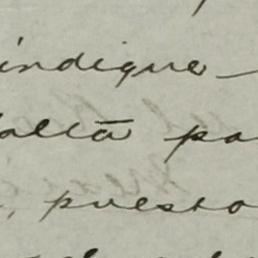 indique
alta pa
, puesto